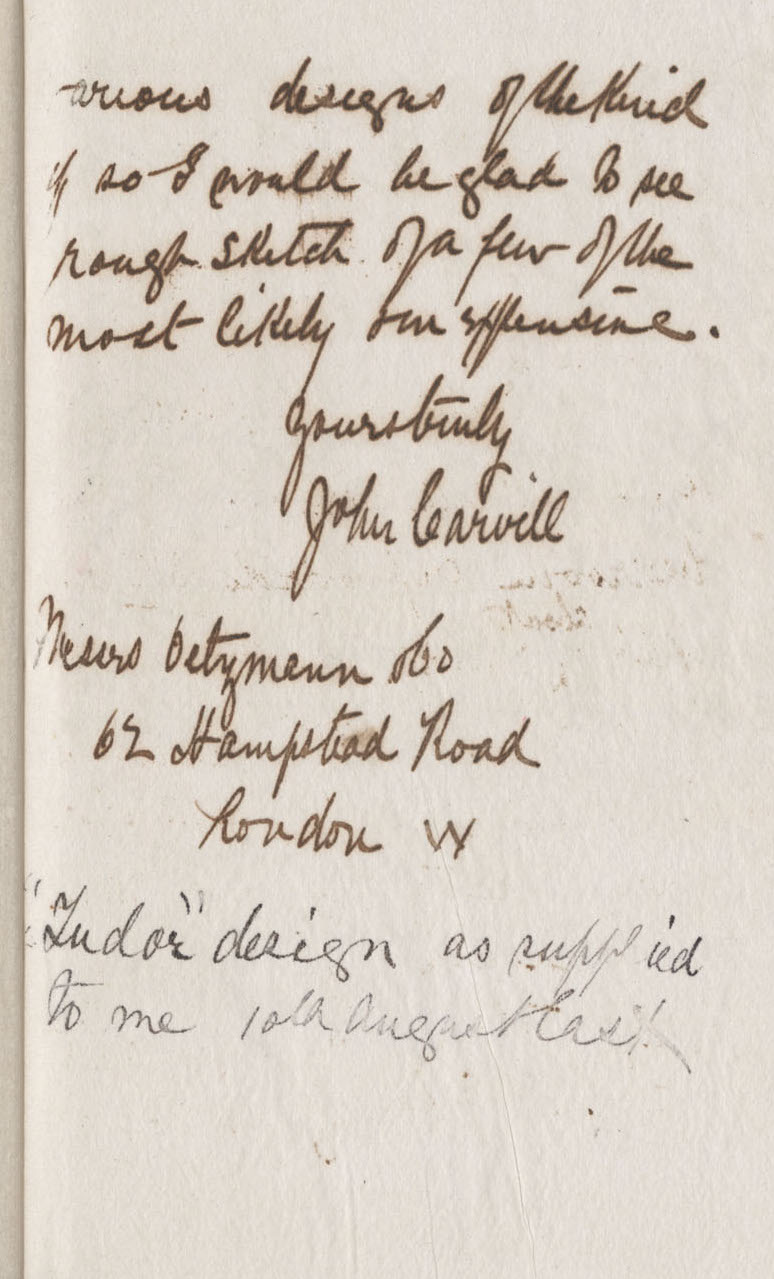 arious designs of the Kind
if so I would be glad to see
rough sketch of a few of the
most likely
Yours truly
John Carvill
Messrs Oetzmann & Co
62 Hampstead Road
London W
"Tudor" design as supplied
to me 10th August last